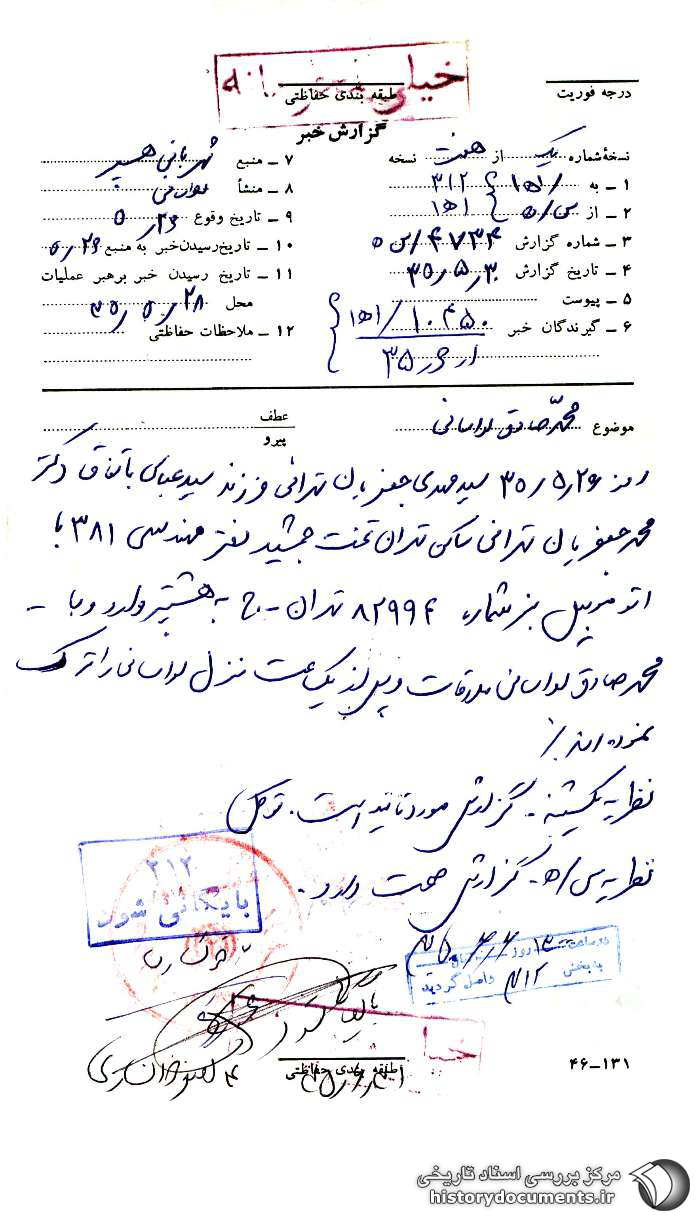 خیلی محرمانه
درجه فوریت
طبقه بندی حفاظتی
گزارش خبر
نسخهٔ شماره یک از هفت نسخه
۱ ـ به ۳۱۲
۲ ـ از
۳ ـ شماره گزارش
۴ ـ تاریخ گزارش ۳۵/۵/۳۰
۵ ـ پیوست
۶ ـ گیرندگان خبر
۷ ـ منبع
۸ ـ منشأ
۹ ـ تاریخ وقوع ۵/۲۶
۱۰ ـ تاریخ رسیدن خبر به منبع ۵/۲۶
۱۱ ـ تاریخ رسیدن خبر برهبر عملیات
محل ۳۵/۵/۲۸
۱۲ ـ ملاحظات حفاظتی
موضوع محمدصادق لواسانی
عطف
پیرو
روز ۳۵/۵/۲۶ سیدمهدی جعفریان تهرانی فرزند سیدعباس باتفاق دکتر
محمد جعفریان تهرانی ساکن تهران تخت جمشید دفتر مهندسی ۳۸۱ با
اتومبیل بنز شماره ۸۲۹۹۴ تهران ـ ج به هشتپر وارد و با ـ
محمدصادق لواسانی ملاقات و پس از یکساعت منزل لواسانی را ترک
نموده اند/.
نظریه یکشنبه ـ گزارش مورد تائید است. توکل
نظریه س/ه ـ گزارش صحت دارد.
۳۱۲
بایگانی شود
به بخش ۳۱۲ واصل گردید
بایگانی شود
طبقه بندی حفاظتی
۴۶-۱۳۱
مرکز بررسی اسناد تاریخی
historydocuments.ir